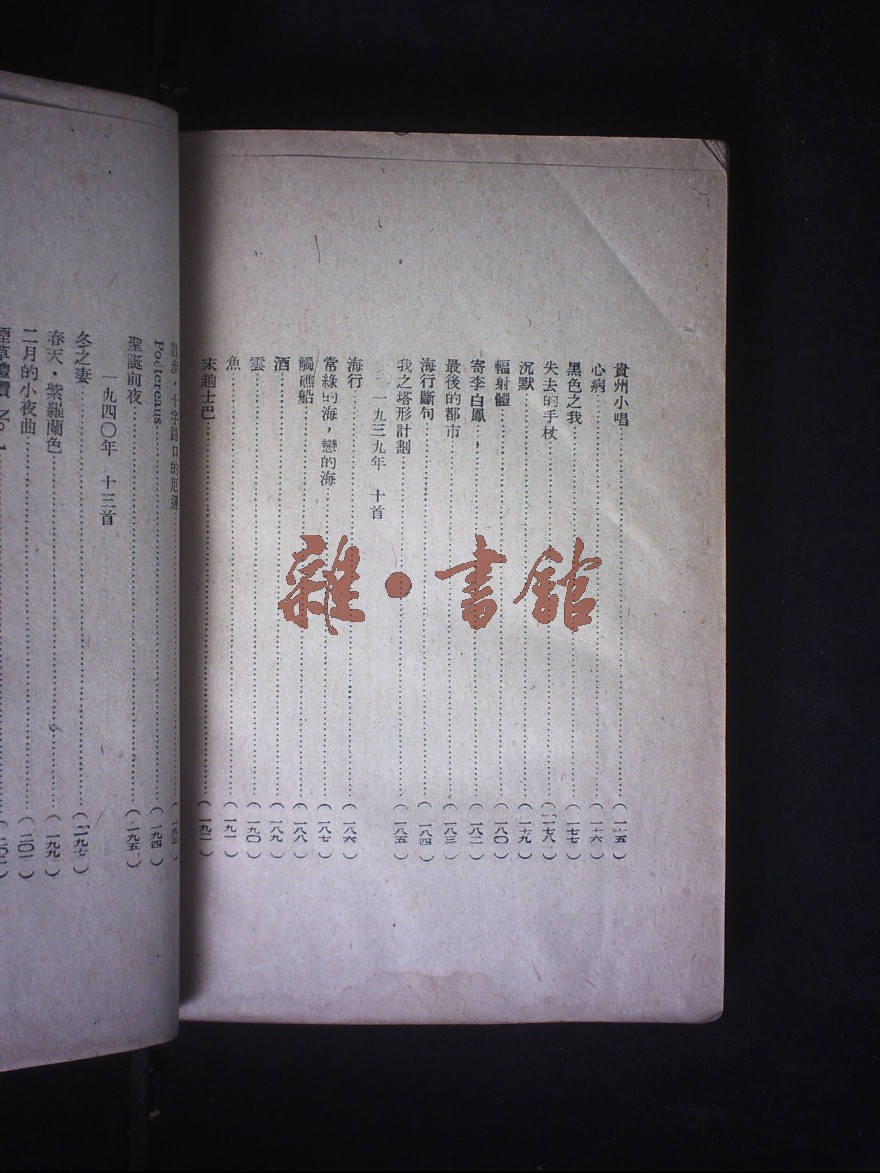 貴州小唱……(一七五)
心病……(一七六)
黑色之我……(一七七)
失去的手杖……(一七八)
沉默……(一七九)
輻射體……(一八〇)
寄李白鳳……(一八二)
最後的都市……(一八三)
海行斷句……(一八四)
我之塔形計劃……(一八五)
一九三九年 十首
海行……(一八六)
常綠的海，戀的海……(一八七)
觸礁船……(一八八)
酒……(一八九)
雲……(一九〇)
魚……(一九一)
末趟士巴……(一九二)
散步·十字路口的厄運……(一九三)
Poctereaus……(一九四)
聖誕前夜……(一九五)
一九四〇年 十三首
冬之妻……(一九七)
春天·紫羅蘭色……(一九九)
二月的小夜曲……(二〇一)
煙草禮讚 No. 1
雜·書館